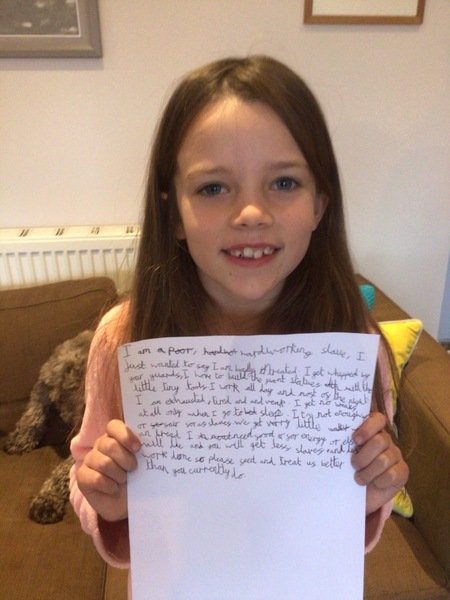 I am a poor, hardworking slave, I
Just wanted to say I am badly treated. I get whipped by
your guards, I have to build the giant statues with the
little tiny tools. I work all day and most of the night
I am exhausted, tired and and weak. I get no breaks
at all only when I go to sleep. I try not
or us slaves. We get verry little water
an bread. I need food sor energy or else
will die and you will get less slaves and less
work done so please seed and treat us better
than you currently do.